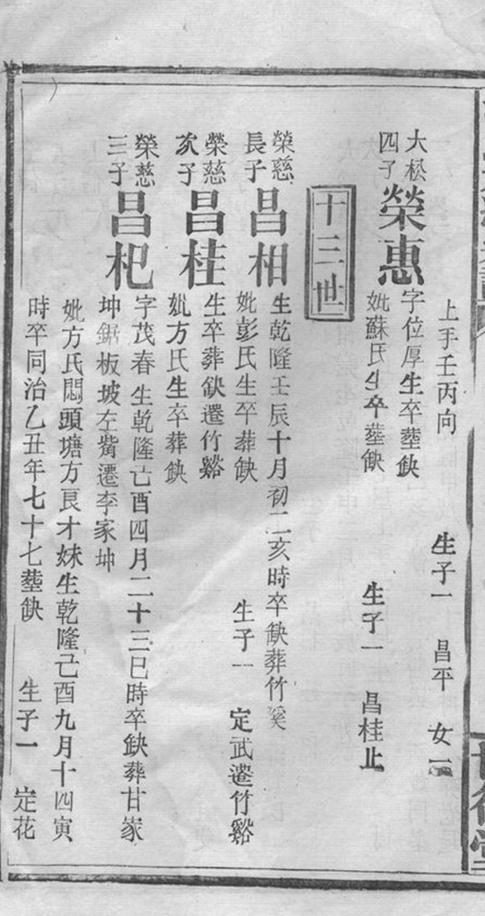 上手壬丙向
生子一 昌平 女一
大松四子 榮惠 字位厚生卒塟缺
妣蘇氏生卒塟缺
生子一 昌桂止
十三世
榮慈長子 昌相 生乾隆壬辰十月初二亥時卒缺葬竹溪
妣彭氏生卒葬缺
生子一 定武遷竹谿
榮慈次子 昌桂 生卒葬缺遷竹谿
妣方氏生卒葬缺
榮慈三子 昌杞 字茂春生乾隆己酉四月二十三巳時卒缺葬甘家
坤鋸板坡左觜遷李家坤
妣方氏悶頭塘方良才妹生乾隆己酉九月十四寅
時卒同治乙丑年七十七塟缺
生子一 定花